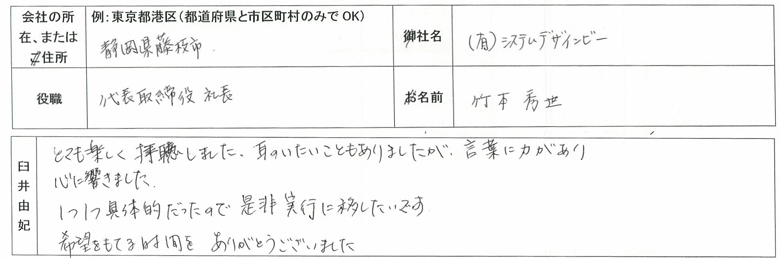 会社の所
在、または
ご住所
例：東京都港区（都道府県と市区町村のみでOK）
静岡県藤枝市
御社名
（有）システムデザインビー
役職
代表取締役 社長
お名前
竹本 秀世
臼井由妃
とても楽しく 拝聴しました、耳のいたいこともありましたが、言葉に力があり
心に響きました。
1つ1つ具体的だったので 是非 実行に移したいです
希望をもてる時間を ありがとうございました